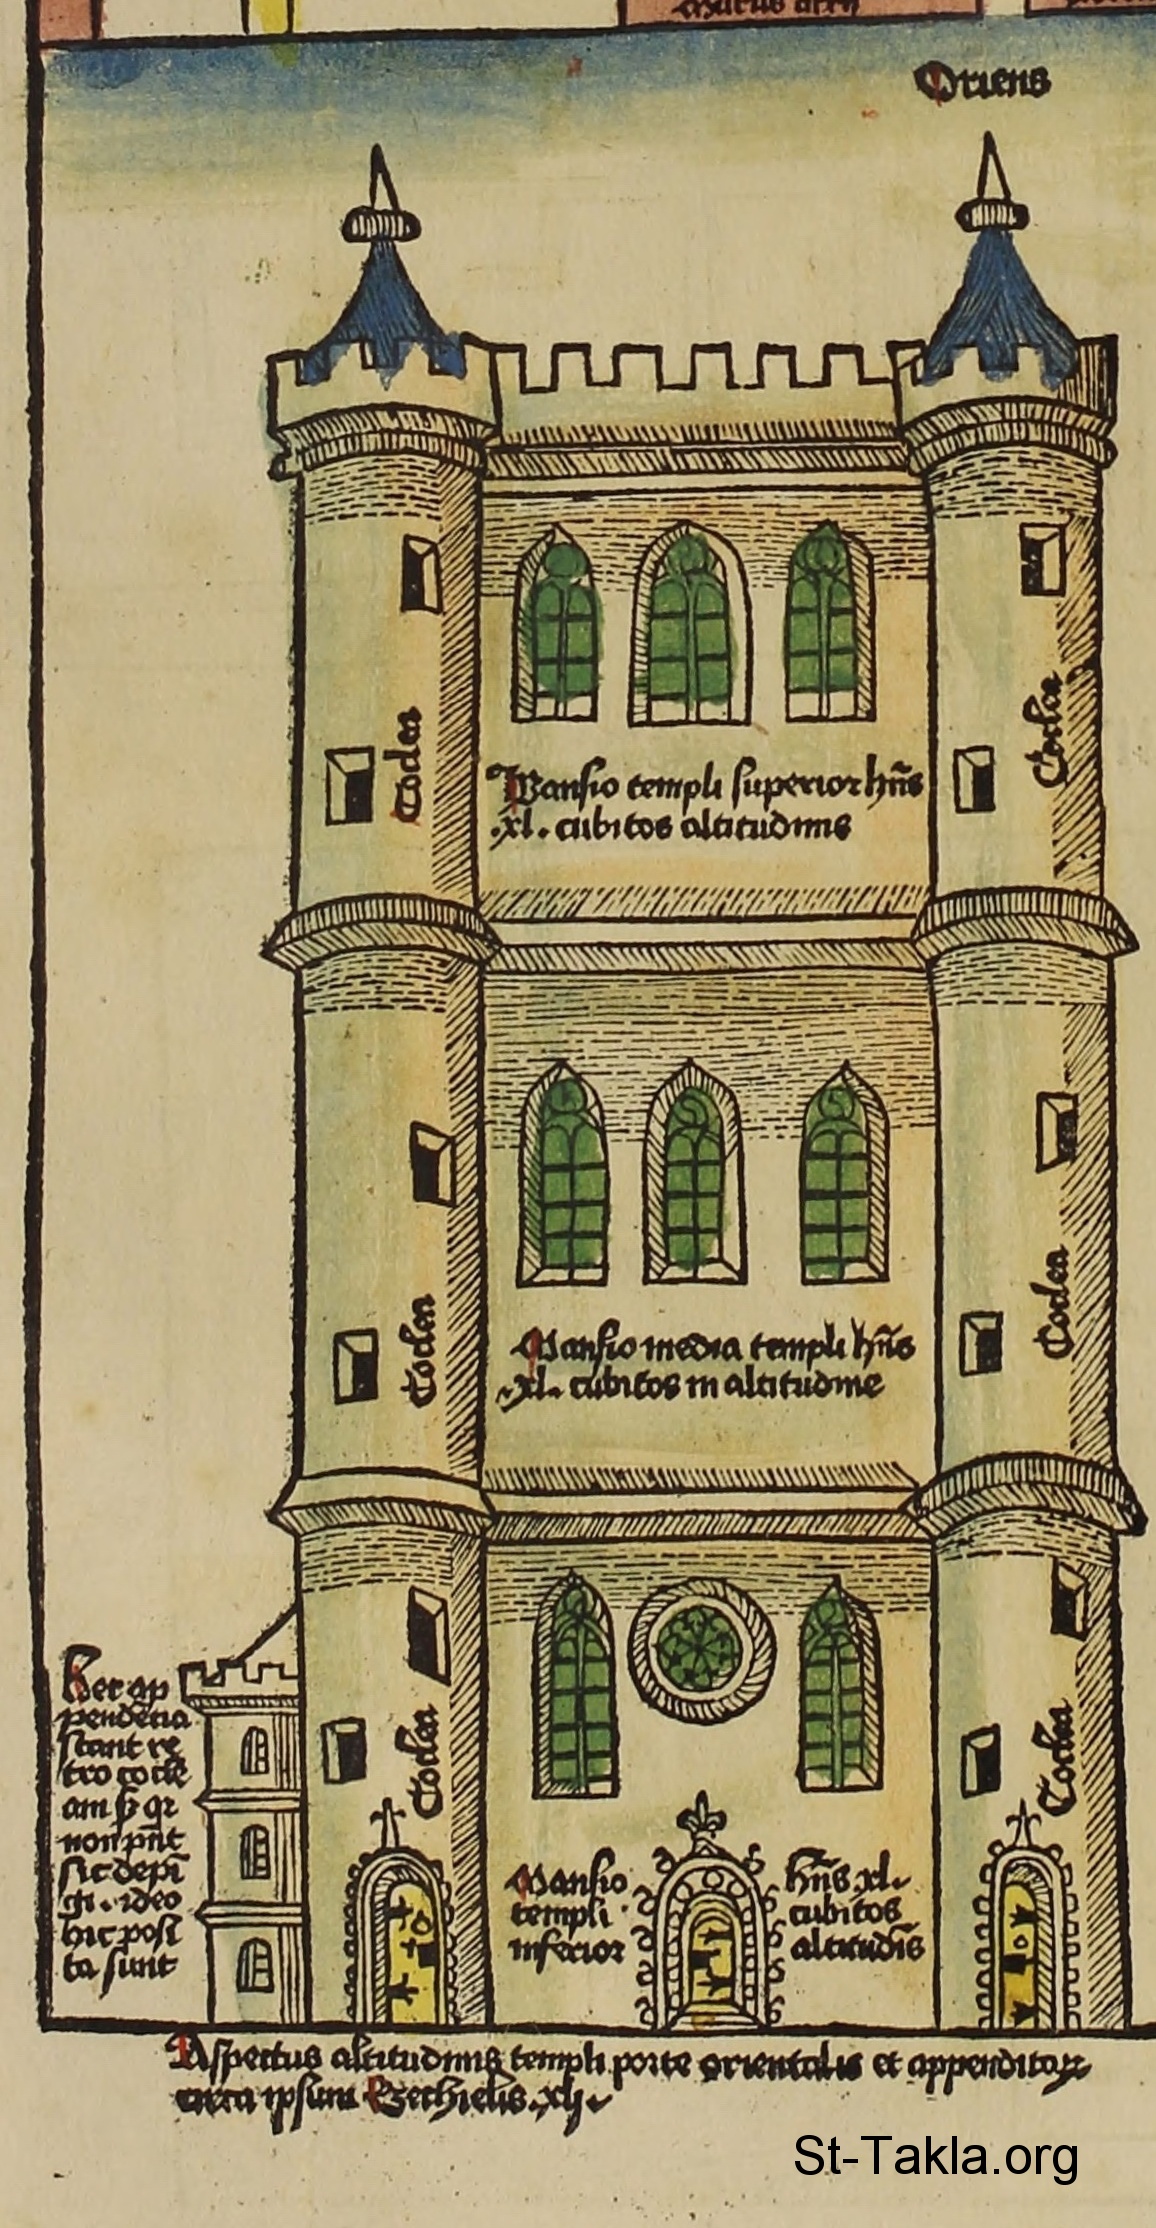 murus atrii
Oriens
Coclea
Coclea
Mansio templi superior hñs
.xl. cubitos altitudinis
Coclea
Coclea
Mansio media templi hñs
.xl. cubitos in altitudine
Coclea
Coclea
Hec ap
pendetia
stant re
tro cocle
am sz qz
non pñt
sic depī
gi. ideo
hic posi
ta sunt
Mansio
templi
inferior
hñs xl.
cubitos
altitudīs
Aspectus altitudinis templi porte orientalis et appenditiaꝝ
circa ipsum Ezechielis .xlj.
St-Takla.org